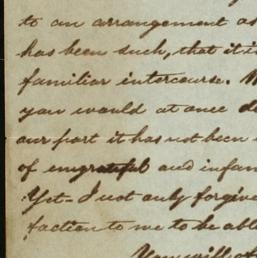 to an arrangement as
has been such, that it is
familiar intercourse.
you would at once
our part it has not been
of ungrateful and infam
Yet - I not only forgive
faction to me to be able
You will